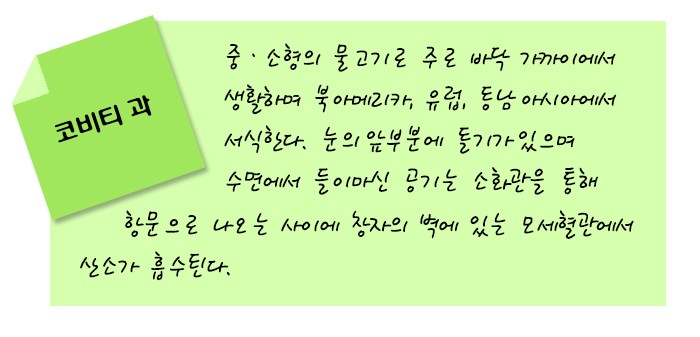 코비티 과
중·소형의 물고기로 주로 바닥 가까이에서
생활하며 북아메리카, 유럽, 동남아시아에서
서식한다. 눈의 앞부분에 돌기가 있으며
수면에서 들이마신 공기는 소화관을 통해
항문으로 나오는 사이에 창자의 벽에 있는 모세혈관에서
산소가 흡수된다.